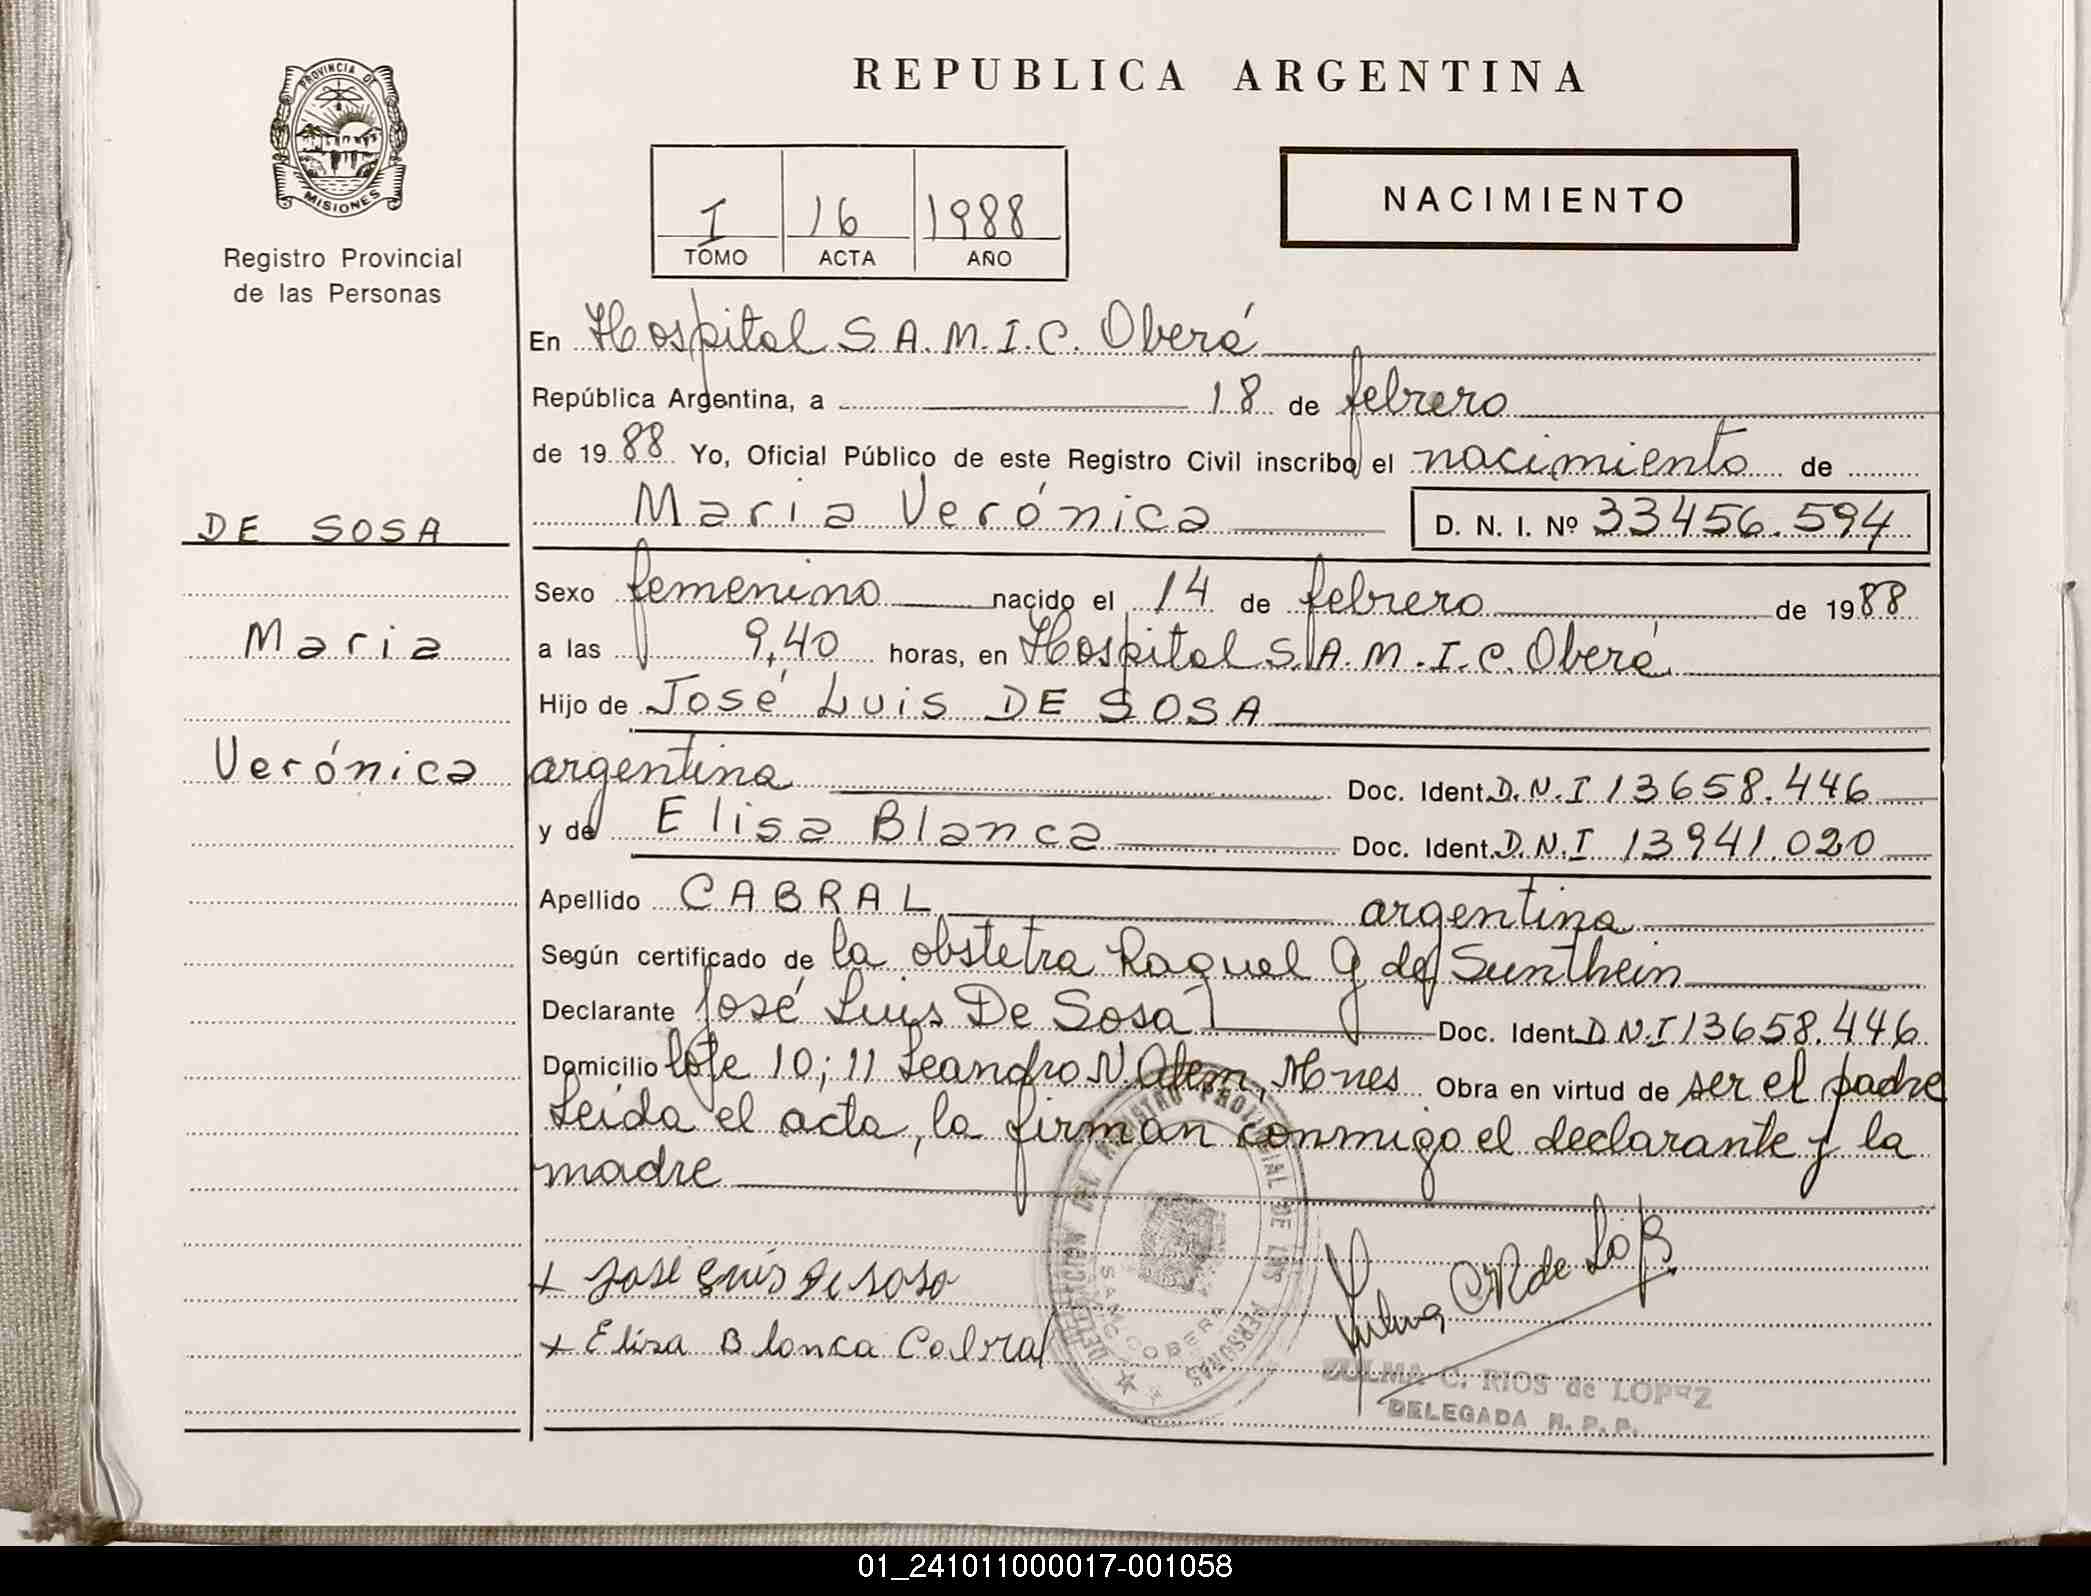 PROVINCIA DE
MISIONES
Registro Provincial
de las Personas
REPUBLICA ARGENTINA
I 16 1988
TOMO ACTA AÑO
NACIMIENTO
En Hospital S.A.M.I.C. Oberá
República Argentina, a 18 de febrero
de 1988 Yo, Oficial Público de este Registro Civil inscribo el nacimiento de
Maria Verónica D. N. I. Nº 33456.594
DE SOSA
Maria
Verónica
Sexo femenino nacido el 14 de febrero de 1988
a las 9,40 horas, en Hospital S.A.M.I.C. Oberá
Hijo de José Luis DE SOSA
argentina Doc. Ident. D.N.I 13658.446
y de Elisa Blanca Doc. Ident. D.N.I 13941.020
Apellido CABRAL argentina
Según certificado de la obstetra Raquel G de Sunthein
Declarante José Luis De Sosa Doc. Ident. D.N.I 13658.446
Domicilio lote 10; 11 Leandro N. Alem, Mnes Obra en virtud de ser el padre
Leida el acta, la firman conmigo el declarante y la
madre
x José Luis De Sosa
x Elisa Blanca Cabral
DELEGACION DEL REGISTRO PROVINCIAL DE LAS PERSONAS
SAMIC OBERA
ZULMA C. RIOS de LOPEZ
DELEGADA R. P. P.
01_241011000017-001058